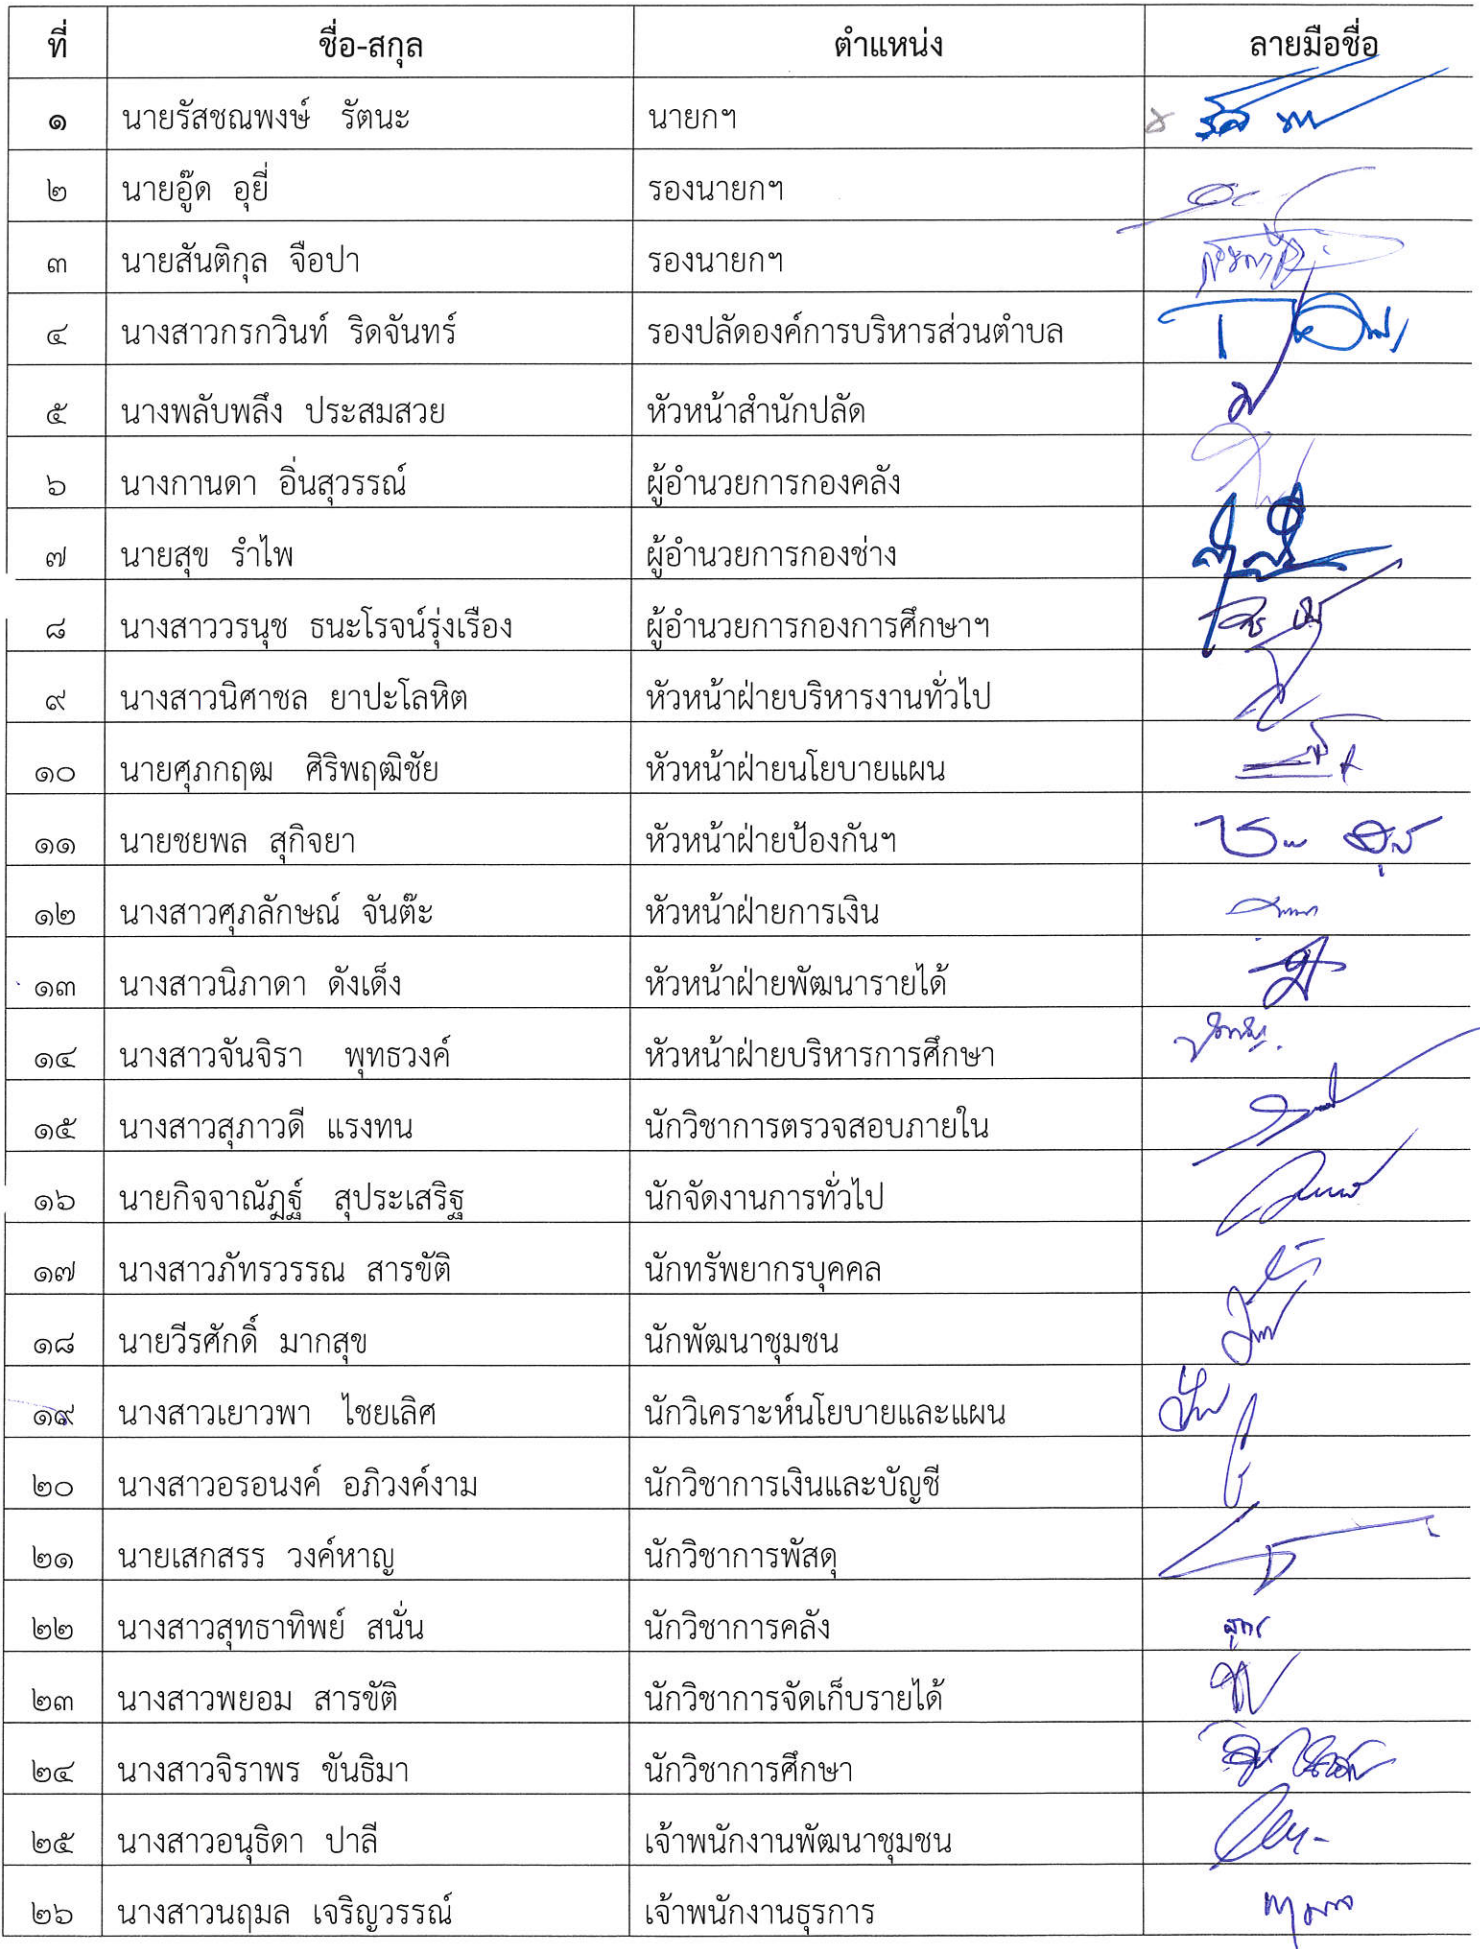 ที่ ชื่อ-สกุล ตำแหน่ง ลายมือชื่อ
๑ นายรัสชณพงษ์ รัตนะ นายกฯ
๒ นายอู๊ด อุยี่ รองนายกฯ
๓ นายสันติกุล จือปา รองนายกฯ
๔ นางสาวกรกวินท์ ริดจันทร์ รองปลัดองค์การบริหารส่วนตำบล
๕ นางพลับพลึง ประสมสวย หัวหน้าสำนักปลัด
๖ นางกานดา อิ่นสุวรรณ์ ผู้อำนวยการกองคลัง
๗ นายสุข รำไพ ผู้อำนวยการกองช่าง
๘ นางสาววรนุช ธนะโรจน์รุ่งเรือง ผู้อำนวยการกองการศึกษาฯ
๙ นางสาวนิศาชล ยาปะโลหิต หัวหน้าฝ่ายบริหารงานทั่วไป
๑๐ นายศุภกฤฒ ศิริพฤฒิชัย หัวหน้าฝ่ายนโยบายแผน
๑๑ นายชยพล สุกิจยา หัวหน้าฝ่ายป้องกันฯ
๑๒ นางสาวศุภลักษณ์ จันต๊ะ หัวหน้าฝ่ายการเงิน
๑๓ นางสาวนิภาดา ดังเด็ง หัวหน้าฝ่ายพัฒนารายได้
๑๔ นางสาวจันจิรา พุทธวงค์ หัวหน้าฝ่ายบริหารการศึกษา
๑๕ นางสาวสุภาวดี แรงทน นักวิชาการตรวจสอบภายใน
๑๖ นายกิจจาณัฏฐ์ สุประเสริฐ นักจัดงานการทั่วไป
๑๗ นางสาวภัทรวรรณ สารขัติ นักทรัพยากรบุคคล
๑๘ นายวีรศักดิ์ มากสุข นักพัฒนาชุมชน
๑๙ นางสาวเยาวพา ไชยเลิศ นักวิเคราะห์นโยบายและแผน
๒๐ นางสาวอรอนงค์ อภิวงค์งาม นักวิชาการเงินและบัญชี
๒๑ นายเสกสรร วงค์หาญ นักวิชาการพัสดุ
๒๒ นางสาวสุทธาทิพย์ สนั่น นักวิชาการคลัง
๒๓ นางสาวพยอม สารขัติ นักวิชาการจัดเก็บรายได้
๒๔ นางสาวจิราพร ขันธิมา นักวิชาการศึกษา
๒๕ นางสาวอนุธิดา ปาลี เจ้าพนักงานพัฒนาชุมชน
๒๖ นางสาวนฤมล เจริญวรรณ์ เจ้าพนักงานธุรการ